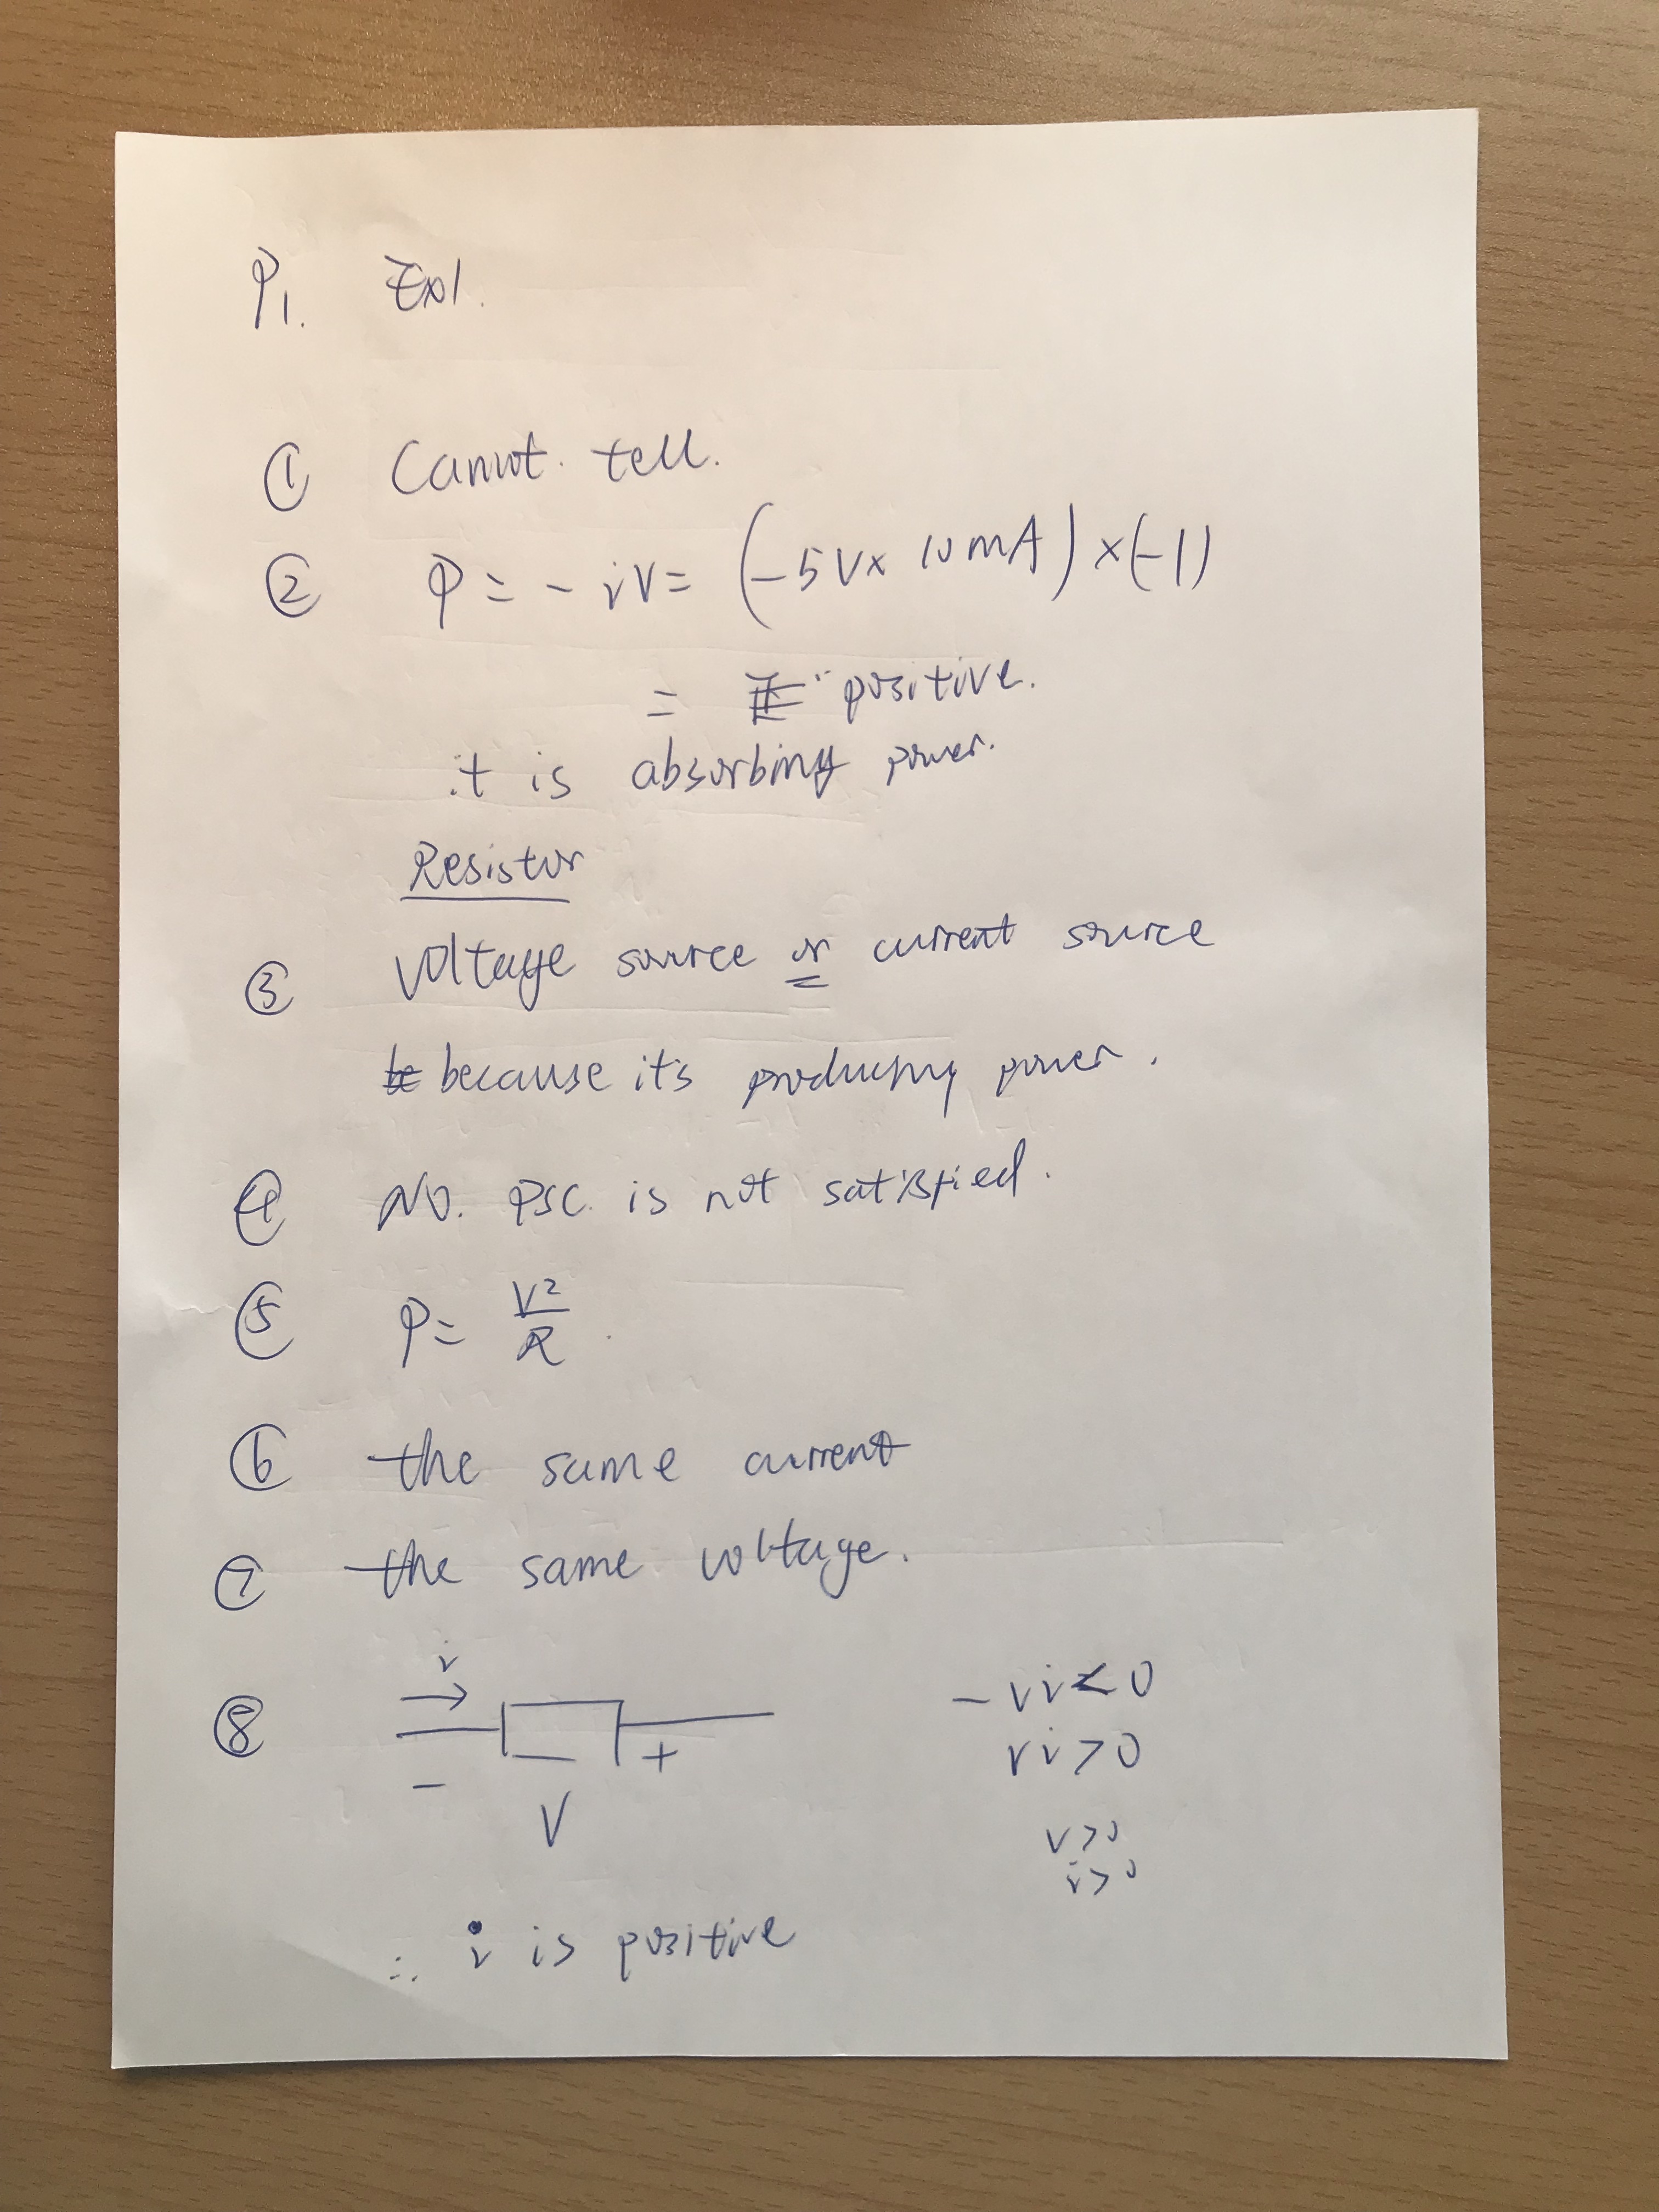 P1. Ex1.
① Cannot. tell.
② P = - iV = (-5V× 10mA) ×(-1)
= positive.
it is absorbing power.
Resistor
③ Voltage source or current source
because it's producing power.
④ NO. PSC. is not satisfied.
⑤ P = V²/R
⑥ the same current
⑦ the same voltage.
⑧ i
- +
V
-vi<0
vi>0
v>0
i>0
∴ i is positive